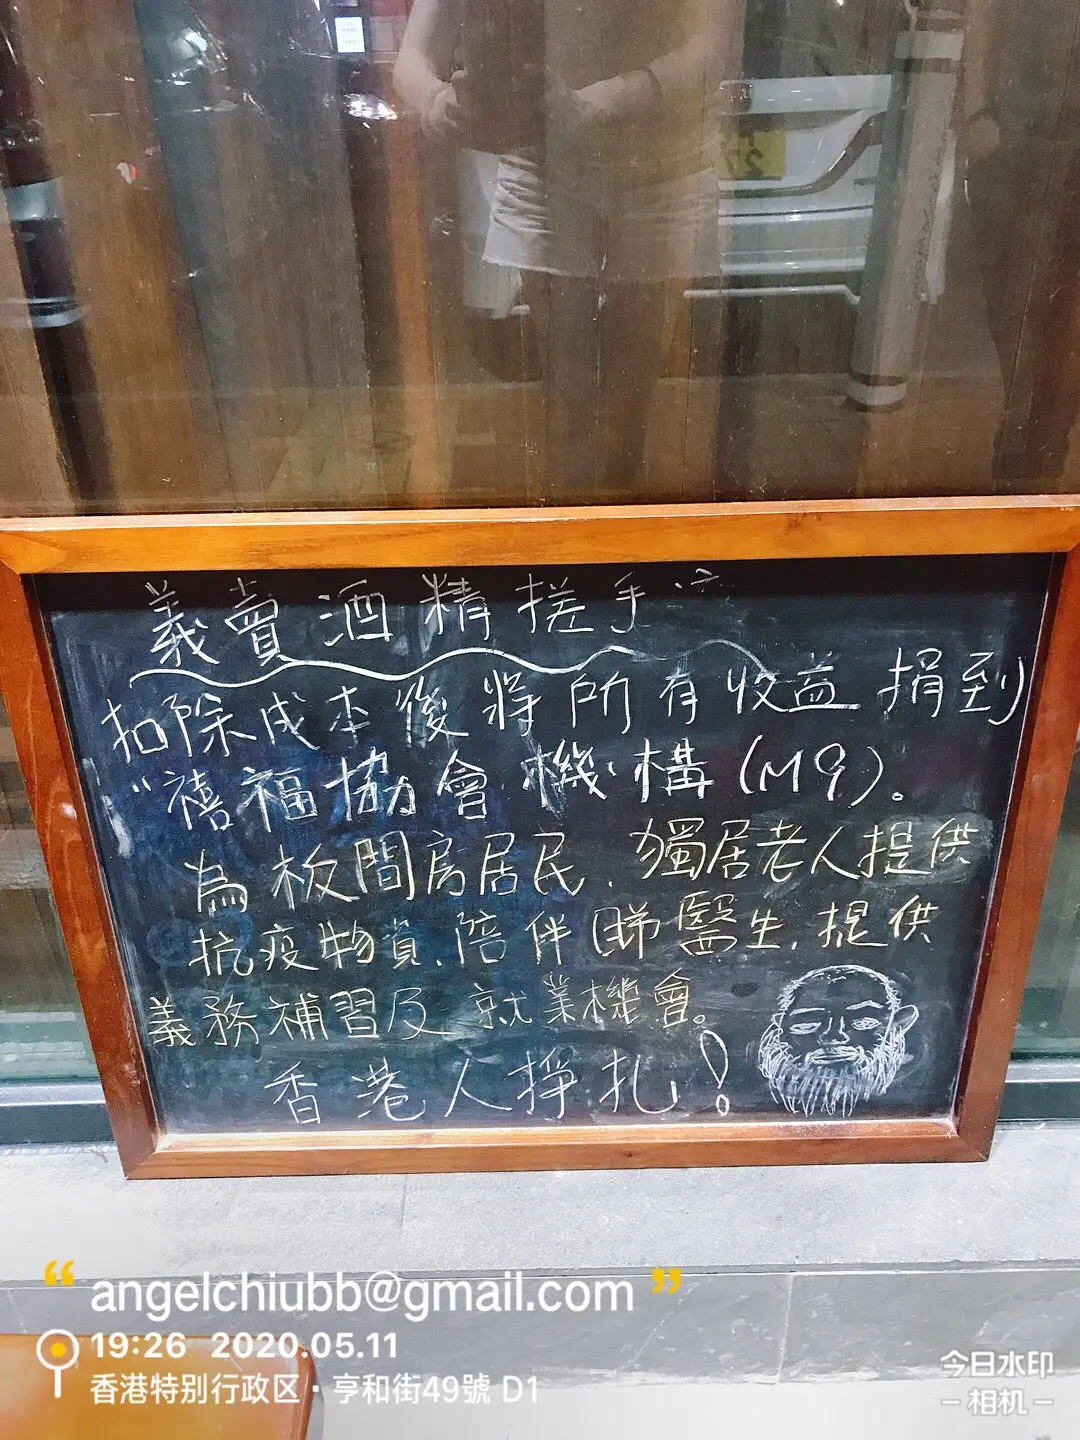 義賣酒精搓手液
扣除成本後將所有收益捐到
"禧福協會機構(M9)。
為板間房居民、獨居老人提供
抗疫物資、陪伴睇醫生,提供
義務補習及就業機會。
香港人掙扎!
“ angelchiubb@gmail.com ”
19:26 2020.05.11
香港特别行政区·亨和街49號 D1
今日水印
－相机－
27